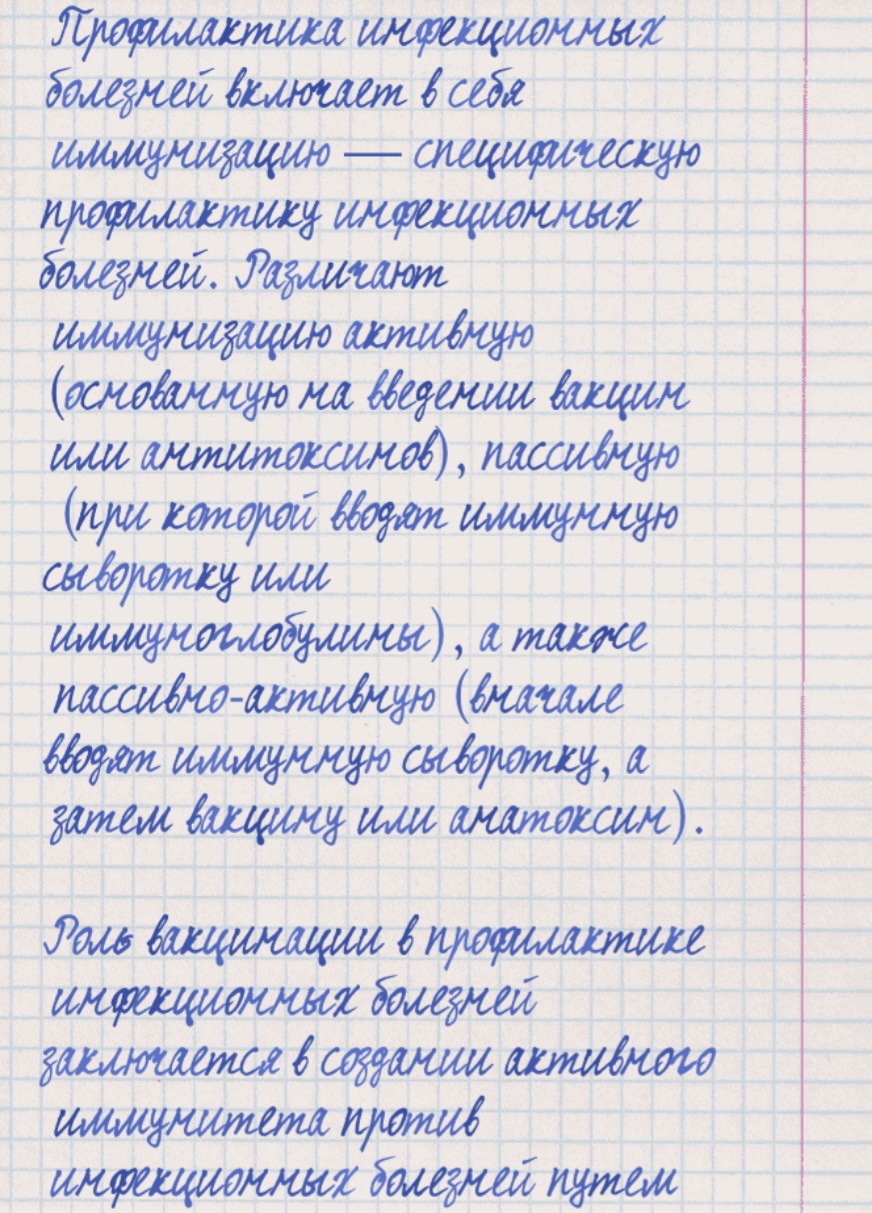 Профилактика инфекционных
болезней включает в себя
иммунизацию — специфическую
профилактику инфекционных
болезней. Различают
иммунизацию активную
(основанную на введении вакцин
или антитоксинов), пассивную
(при которой вводят иммунную
сыворотку или
иммуноглобулины), а также
пассивно-активную (вначале
вводят иммунную сыворотку, а
затем вакцину или анатоксин).
Роль вакцинации в профилактике
инфекционных болезней
заключается в создании активного
иммунитета против
инфекционных болезней путем